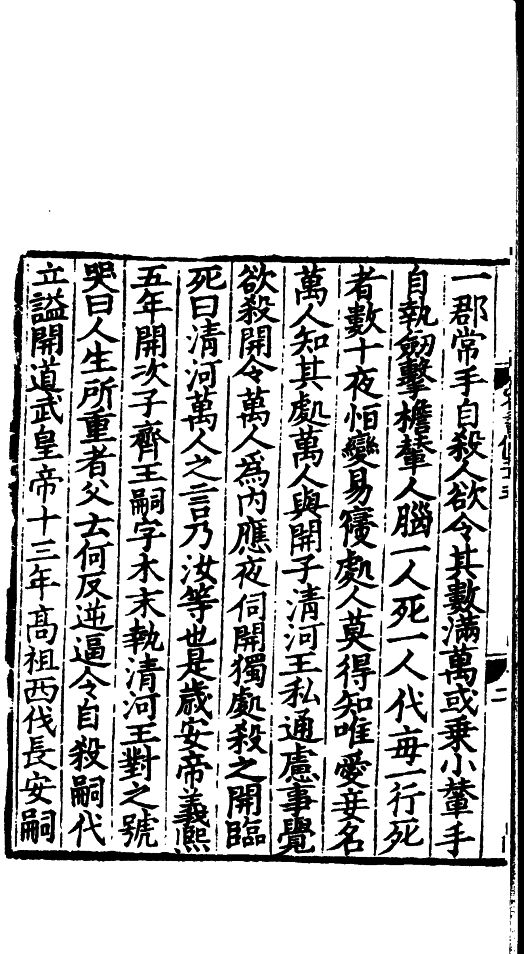 一郡常手自殺人欲令其數滿萬或乗小輦手
自執劒擊檐輦人腦一人死一人代毎一行死
者數十夜怕變易寢處人莫得知唯愛妾名
萬人知其處萬人與開子清河王私通慮事覺
欲殺開令萬人爲内應夜伺開獨處殺之開臨
死曰清河萬人之言乃汝等也是歳安帝義熙
五年開次子齊王嗣字木末執清河王對之號
哭曰人生所重者父云何反逆逼令自殺嗣代
立謚開道武皇帝十三年髙祖西伐長安嗣
二